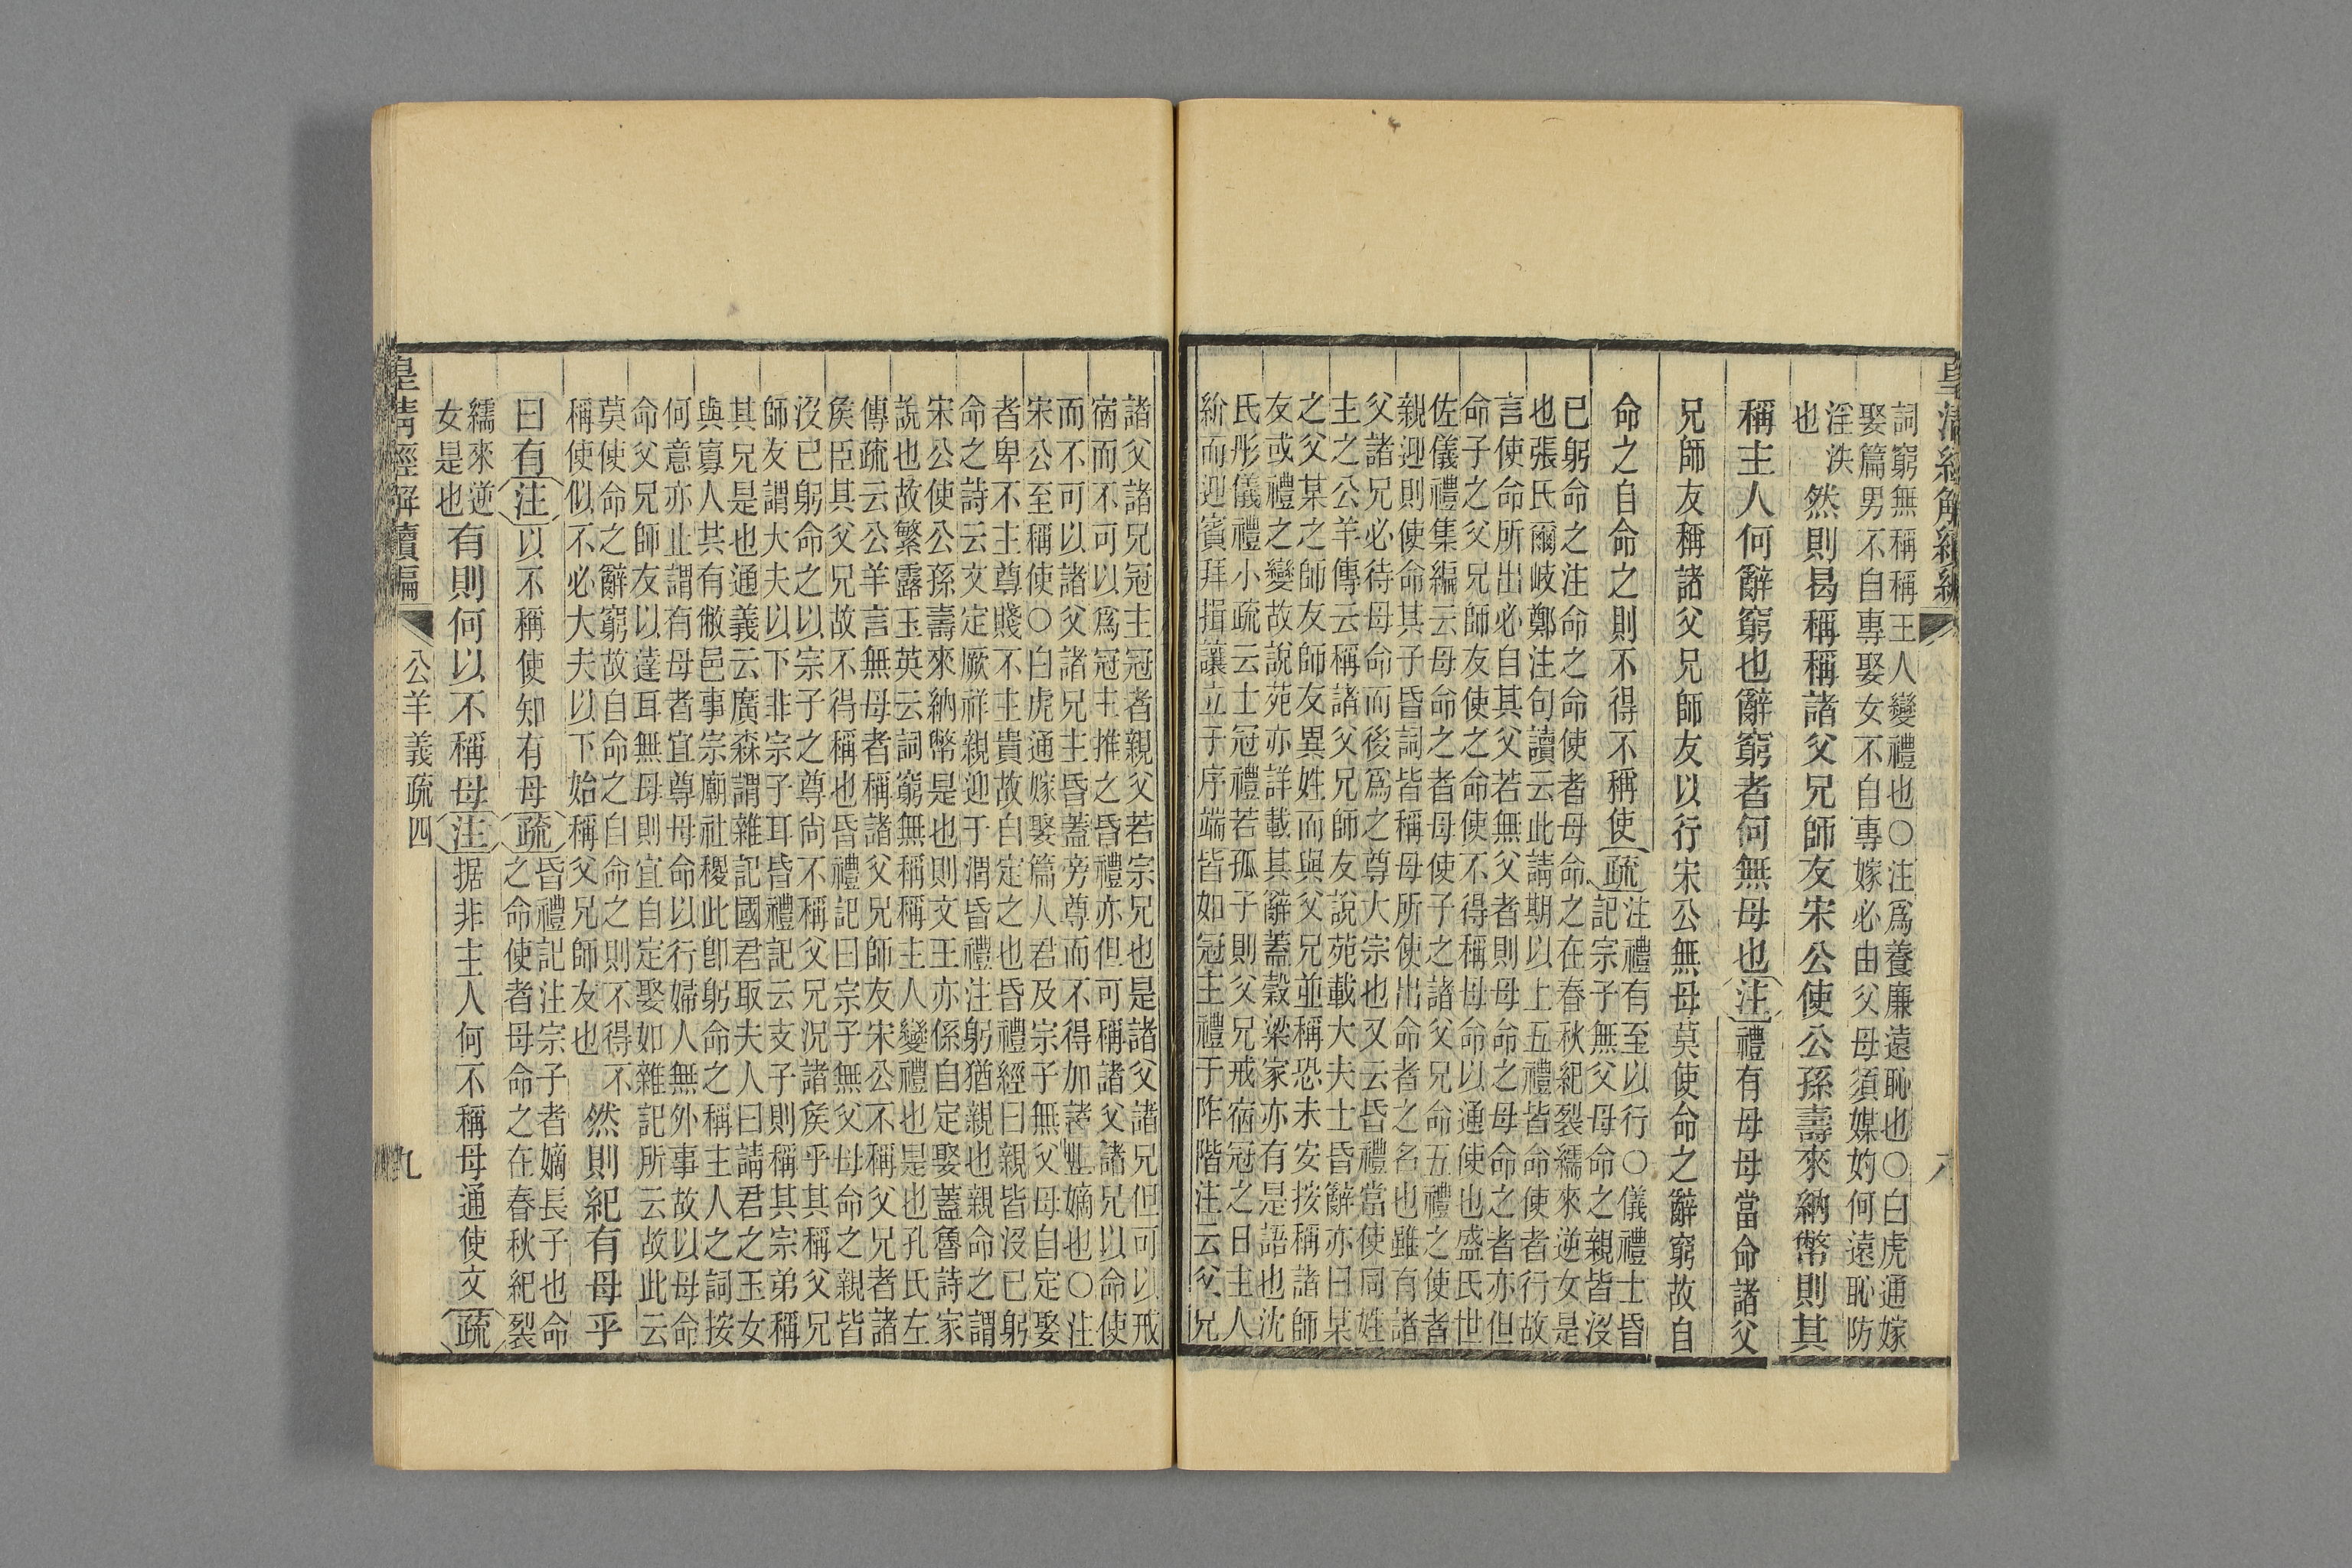 皇清經解續編
詞窮無稱稱主人變禮也〇注爲養廉遠恥也〇白虎通嫁
娶篇男不自專娶女不自專嫁必由父母須媒妁何遠恥防
淫泆
也
然則曷稱稱諸父兄師友宋公使公孫壽來納幣則其
稱主人何辭窮也辭窮者何無母也注禮有母母當命諸父
兄師友稱諸父兄師友以行宋公無母莫使命之辭窮故自
命之自命之則不得不稱使疏
注禮有至以行〇儀禮士昏
記宗子無父母命之親皆沒
已躬命之注命之命使者母命之在春秋紀裂繻來逆女是
也張氏爾岐鄭注句讀云此請期以上五禮皆命使者行故
言使命所出必自其父若無父者則母命之母命之者亦但
命子之父兄師友使之命使不得稱母命以通使也盛氏世
佐儀禮集編云母命之者母使子之諸父兄命五禮之使者
親迎則使命其子昏詞皆稱母所使出命者之名也雖有諸
父諸兄必待母命而後爲之尊大宗也又云昏禮當使同姓
主之公羊傳云稱諸父兄師友說苑載大夫士昏辭亦曰某
之父某之師友師友異姓而與父兄並稱恐未安按稱諸師
友或禮之變故說苑亦詳載其辭蓋穀梁家亦有是語也沈
氏彤儀禮小疏云士冠禮若孤子則父兄戒宿冠之日主人
紒而迎賓拜揖讓立于序端皆如冠主禮于阼階注云父兄
諸父諸兄冠主冠者親父若宗兄也是諸父諸兄但可以戒
宿而不可以爲冠主推之昏禮亦但可稱諸父諸兄以命使
而不可以諸父諸兄主昏蓋旁尊而不得加諸世嫡也〇注
宋公至稱使〇白虎通嫁娶篇人君及宗子無父母自定娶
者卑不主尊賤不主貴故自定之也昏禮經曰親皆沒已躬
命之詩云文定厥祥親迎于渭昏禮注躬猶親也親命之謂
宋公使公孫壽來納幣是也則文王亦係自定娶蓋魯詩家
說也故繁露玉英云詞窮無稱稱主人變禮也是也孔氏左
傳疏云公羊言無母者稱諸父兄師友宋公不稱父兄者諸
矦臣其父兄故不得稱也昏禮記曰宗子無父母命之親皆
沒已躬命之以宗子之尊尙不稱父兄況諸矦乎其稱父兄
師友謂大夫以下非宗子耳皆禮記云支子則稱其宗弟稱
其兄是也通義云廣森謂雜記國君取夫人曰請君之玉女
與寡人共有敝邑事宗廟社稷此卽躬命之稱主人之詞按
何意亦止謂有母者宜尊母命以行婦人無外事故以母命
命父兄師友以達耳無母則宜自定娶如雜記所云故此云
莫使命之辭窮故自命之自命之則不得不
稱使似不必大夫以下始稱父兄師友也
然則紀有母乎
曰有注以不稱使知有母疏
昏禮記注宗子者嫡長子也命
之命使者母命之在春秋紀裂
繻來逆
女是也
有則何以不稱母注据非主人何不稱母通使文疏
皇清經解續編
公羊義疏四
九